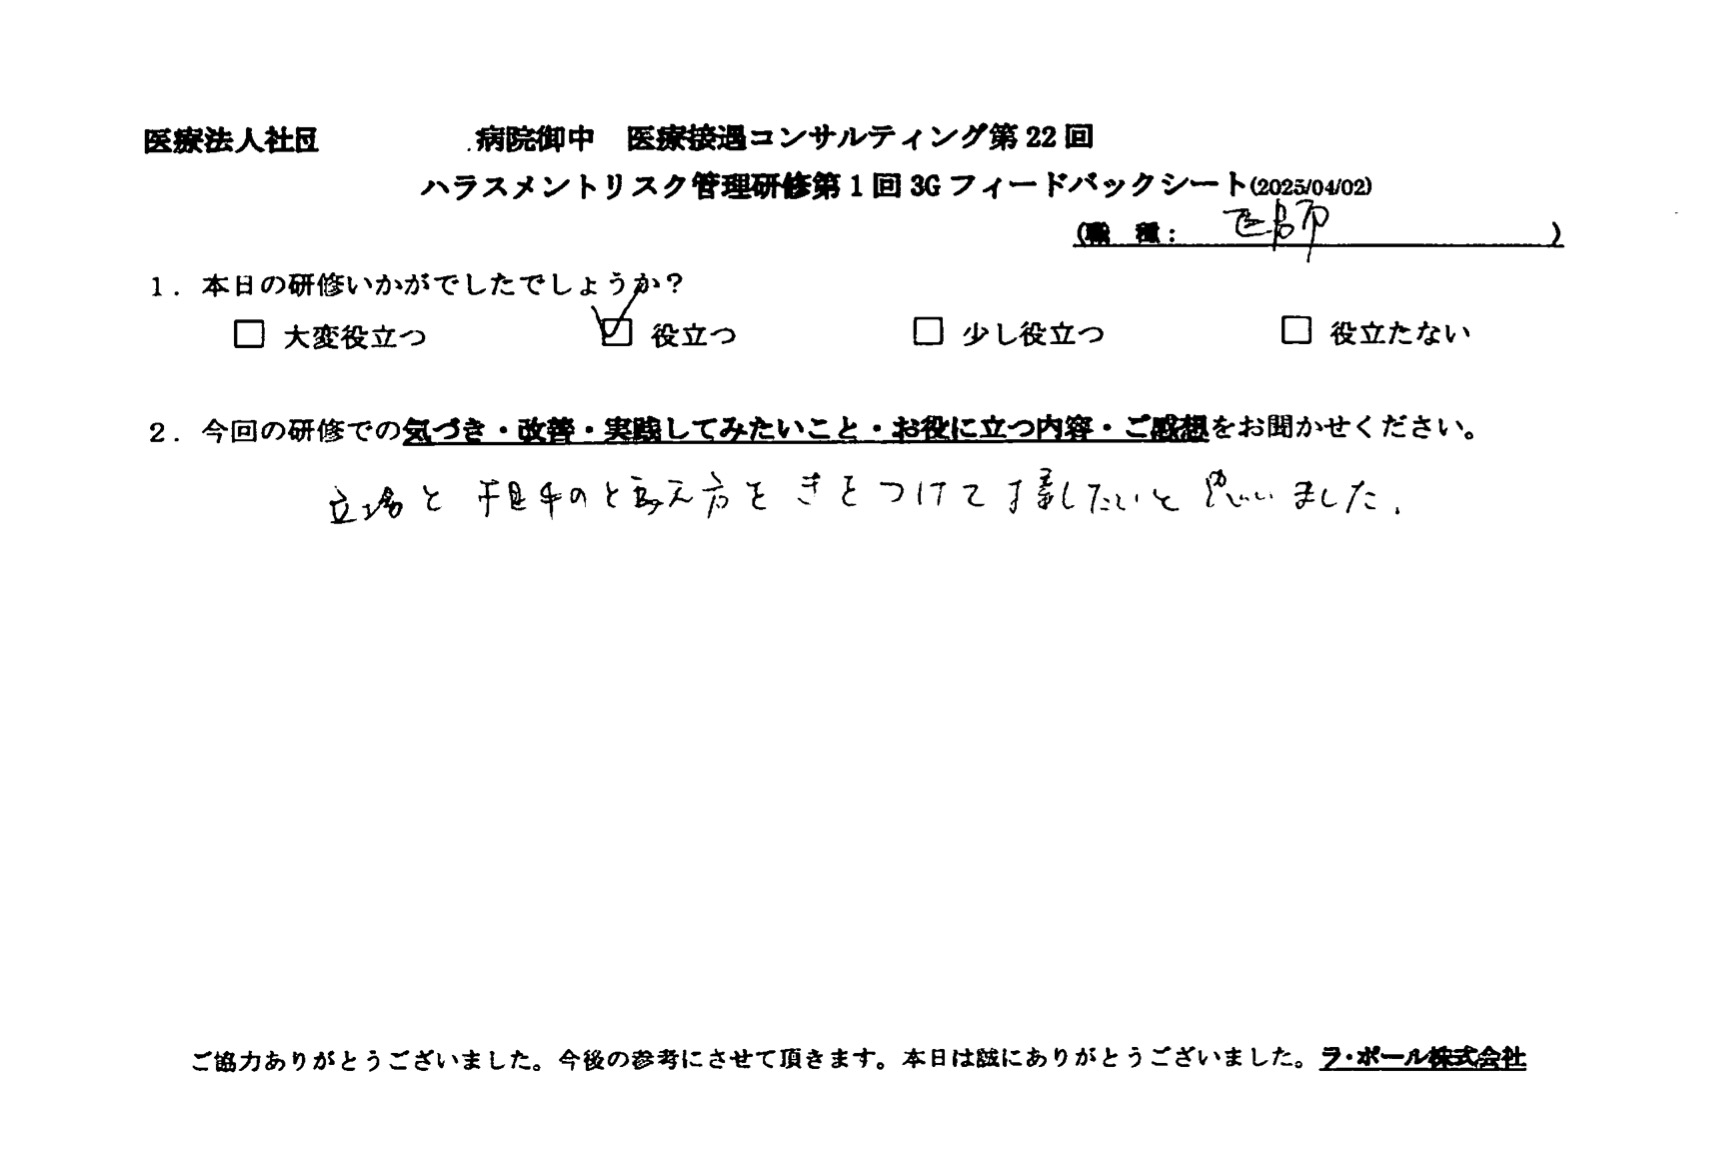 医療法人社団 病院御中 医療接遇コンサルティング第22回
ハラスメントリスク管理研修第1回3Gフィードバックシート(2025/04/02)
(職 種: 医師 )
1. 本日の研修いかがでしたでしょうか?
□ 大変役立つ ☑ 役立つ □ 少し役立つ □ 役立たない
2. 今回の研修での気づき・改善・実践してみたいこと・お役に立つ内容・ご感想をお聞かせください。
立場と相手のとらえ方をきをつけて接したいと思いました.
ご協力ありがとうございました。今後の参考にさせて頂きます。本日は誠にありがとうございました。ラ・ポール株式会社